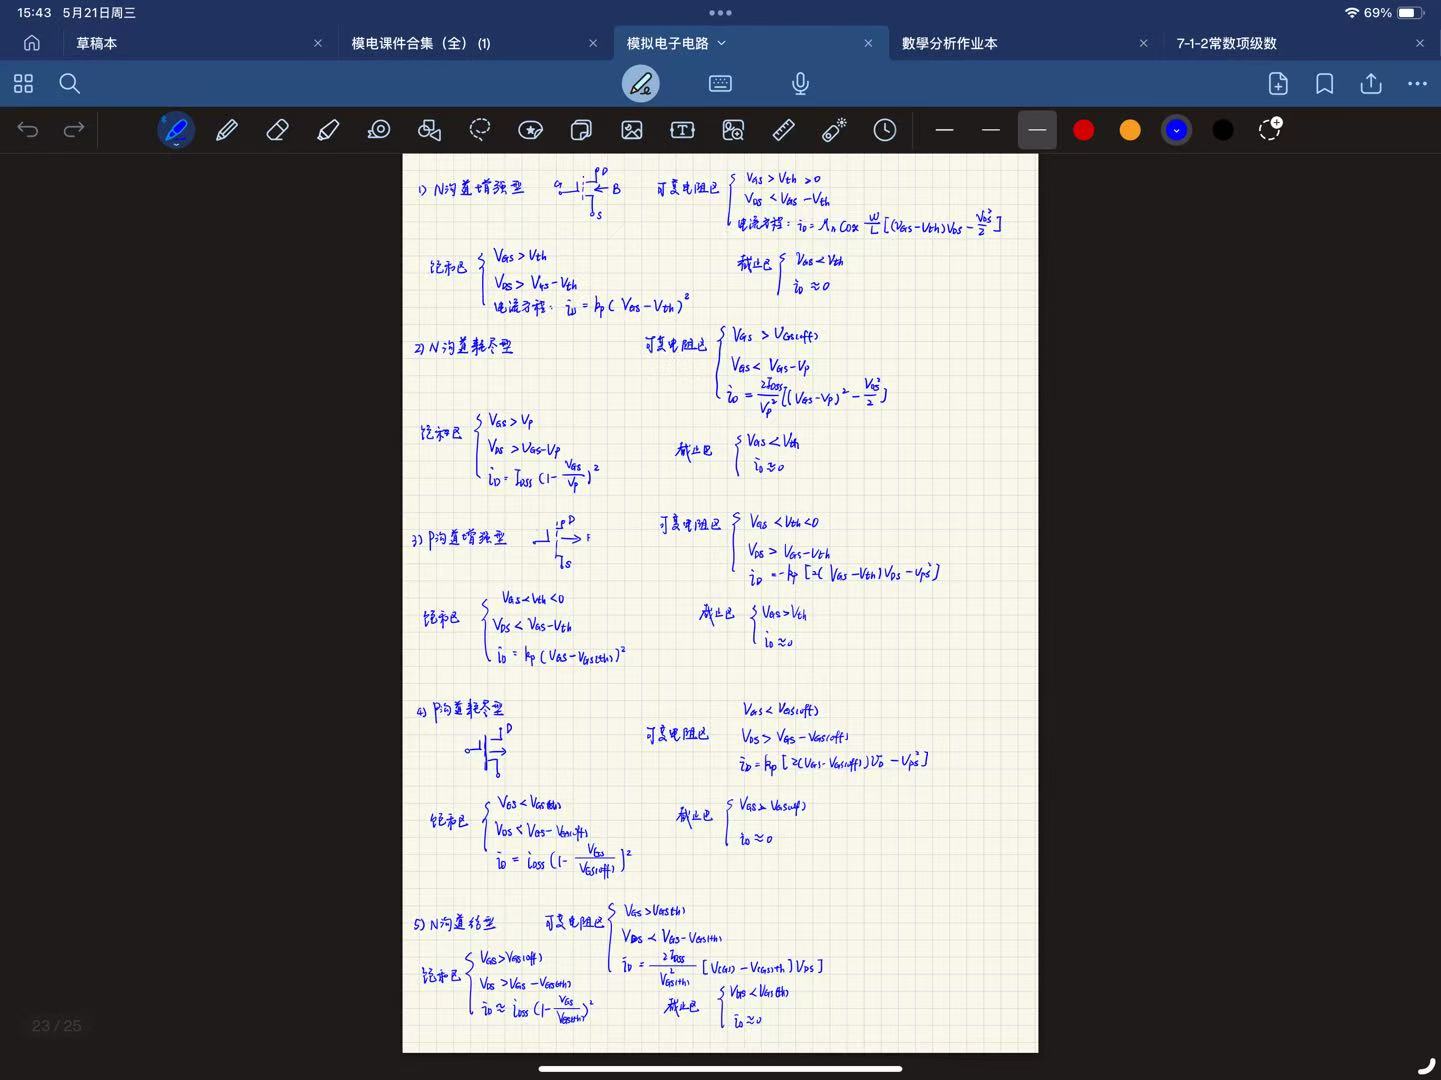 15:43 5月21日周三
69%
草稿本
模电课件合集（全）(1)
模拟电子电路
數學分析作业本
7-1-2常数项级数
1) N沟道增强型
G
D
B
S
可变电阻区
VGS > Vth > 0
VDS < VGS - Vth
电流方程: iD = μn Cox W/L [(VGS - Vth) VDS - VDS²/2]
饱和区
VGS > Vth
VDS > VGS - Vth
电流方程: iD = kp (VGS - Vth)²
截止区
VGS < Vth
iD ≈ 0
2) N沟道耗尽型
可变电阻区
VGS > VGS(off)
VGS < VGS - Vp
iD = 2IDSS/Vp² [(VGS - Vp)² - VDS²/2]
饱和区
VGS > Vp
VDS > VGS - Vp
iD = IDSS (1 - VGS/Vp)²
截止区
VGS < Vth
iD ≈ 0
3) P沟道增强型
D
S
可变电阻区
VGS < Vth < 0
VDS > VGS - Vth
iD = -kp [2(VGS - Vth) VDS - VDS²]
饱和区
VGS < Vth < 0
VDS < VGS - Vth
iD = kp (VGS - VGS(th))²
截止区
VGS > Vth
iD ≈ 0
4) P沟道耗尽型
D
可变电阻区
VGS < VGS(off)
VDS > VGS - VGS(off)
iD = kp [2(VGS - VGS(off)) VD - VDS²]
饱和区
VGS < VGS(th)
VDS < VGS - VGS(off)
iD = iDSS (1 - VGS/VGS(off))²
截止区
VGS > VGS(off)
iD ≈ 0
5) N沟道结型
可变电阻区
VGS > VGS(th)
VDS < VGS - VGS(th)
iD = 2IDSS/VGS(th)² [V(GS) - V(GS)th) VDS]
饱和区
VGS > VGS(off)
VDS > VGS - VGS(th)
iD ≈ iDSS (1 - VGS/VGS(th))²
截止区
VGS < VGS(th)
iD ≈ 0
23 / 25